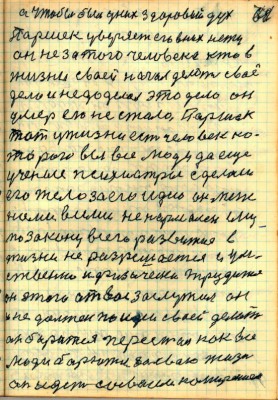 а чтобы был у них здоровый дух
Паршек уверяет его в них нету
он не за того человека кто в
жизни своей начал делать своё
дело и не доделал это дело он
умер его не стало, Паршек
тот у жизни есть человек ко-
торого все люди да еще
ученые психиатры сделали
его тело за его идею он меж
ними
ненормален ему
по закону всего развития в
жизни не разрешается и ум-
ственно и физически трудится
он этого от вас заслужил он
не должен по идеи своей делать
он борется перестал как все
люди борются за свою жизнь
он идет совсем